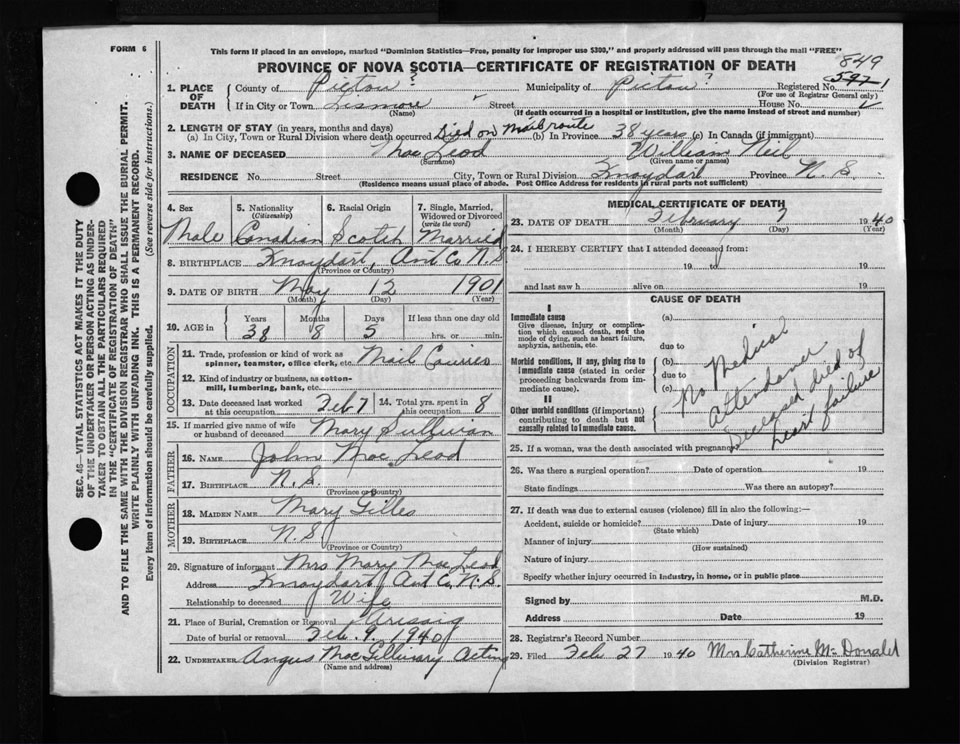 FORM 6
This form if placed in an envelope, marked "Dominion Statistics—Free, penalty for improper use $300," and properly addressed will pass through the mail "FREE"
849
PROVINCE OF NOVA SCOTIA—CERTIFICATE OF REGISTRATION OF DEATH
1. PLACE OF DEATH
County of Pictou ? Municipality of Pictou ? Registered No. 597 1
(For use of Registrar General only)
If in City or Town Lismore Street House No.
(Name) (If death occurred in a hospital or institution, give the name instead of street and number)
2. LENGTH OF STAY (in years, months and days)
(a) In City, Town or Rural Division where death occurred Died on Mail route (b) In Province 38 years (c) In Canada (if immigrant)
3. NAME OF DECEASED Mac Leod William Neil
(Surname) (Given name or names)
RESIDENCE No. Street City, Town or Rural Division Knoydart Province N. S.
(Residence means usual place of abode. Post Office Address for residents in rural parts not sufficient)
4. Sex 5. Nationality (Citizenship) 6. Racial Origin 7. Single, Married, Widowed or Divorced (write the word)
Male Canadian Scotch Married
8. BIRTHPLACE Knoydart, Ant Co N.S
(Province or Country)
9. DATE OF BIRTH May 12 1901
(Month) (Day) (Year)
10. AGE in Years Months Days If less than one day old
38 8 5 hrs. or min.
OCCUPATION
11. Trade, profession or kind of work as spinner, teamster, office clerk, etc. Mail Courier
12. Kind of industry or business, as cotton-mill, lumbering, bank, etc.
13. Date deceased last worked at this occupation Feb 7 14. Total yrs. spent in this occupation 8
15. If married give name of wife or husband of deceased Mary Sullivan
FATHER
16. NAME John Mac Leod
17. BIRTHPLACE N.S.
(Province or Country)
MOTHER
18. MAIDEN NAME Mary Gilles
19. BIRTHPLACE N.S
(Province or Country)
20. Signature of informant Mrs Mary Mac Leod
Address Knoydart Ant Co, N.S.
Relationship to deceased Wife
21. Place of Burial, Cremation or Removal Arisaig
Date of burial or removal Feb. 9. 1940
22. UNDERTAKER Angus MacGillivary Acting
(Name and address)
MEDICAL CERTIFICATE OF DEATH
23. DATE OF DEATH February 7 1940
(Month) (Day) (Year)
24. I HEREBY CERTIFY that I attended deceased from:
19 to 19
and last saw h alive on 19
CAUSE OF DEATH
I
Immediate cause (a)
Give disease, injury or complication which caused death, not the mode of dying, such as heart failure, asphyxia, asthenia, etc.
due to
Morbid conditions, if any, giving rise to immediate cause (stated in order proceeding backwards from immediate cause).
(b)
due to
(c)
II
Other morbid conditions (if important) contributing to death but not causally related to immediate cause.
No Medical
Attendance
Deceased died of
heart failure
25. If a woman, was the death associated with pregnancy?
26. Was there a surgical operation? Date of operation 19
State findings Was there an autopsy?
27. If death was due to external causes (violence) fill in also the following:—
Accident, suicide or homicide? Date of injury 19
(State which)
Manner of injury
(How sustained)
Nature of injury
Specify whether injury occurred in industry, in home, or in public place
Signed by M.D.
Address Date 19
28. Registrar's Record Number
29. Filed Feb 27 1940 Mrs Catherine McDonald
(Division Registrar)
SEC. 46—VITAL STATISTICS ACT MAKES IT THE DUTY
OF THE UNDERTAKER OR PERSON ACTING AS UNDER-
TAKER TO OBTAIN ALL THE PARTICULARS REQUIRED
IN THE "CERTIFICATE OF REGISTRATION OF DEATH"
AND TO FILE THE SAME WITH THE DIVISION REGISTRAR WHO SHALL ISSUE THE BURIAL PERMIT.
WRITE PLAINLY WITH UNFADING INK. THIS IS A PERMANENT RECORD.
Every item of information should be carefully supplied. (See reverse side for instructions.)